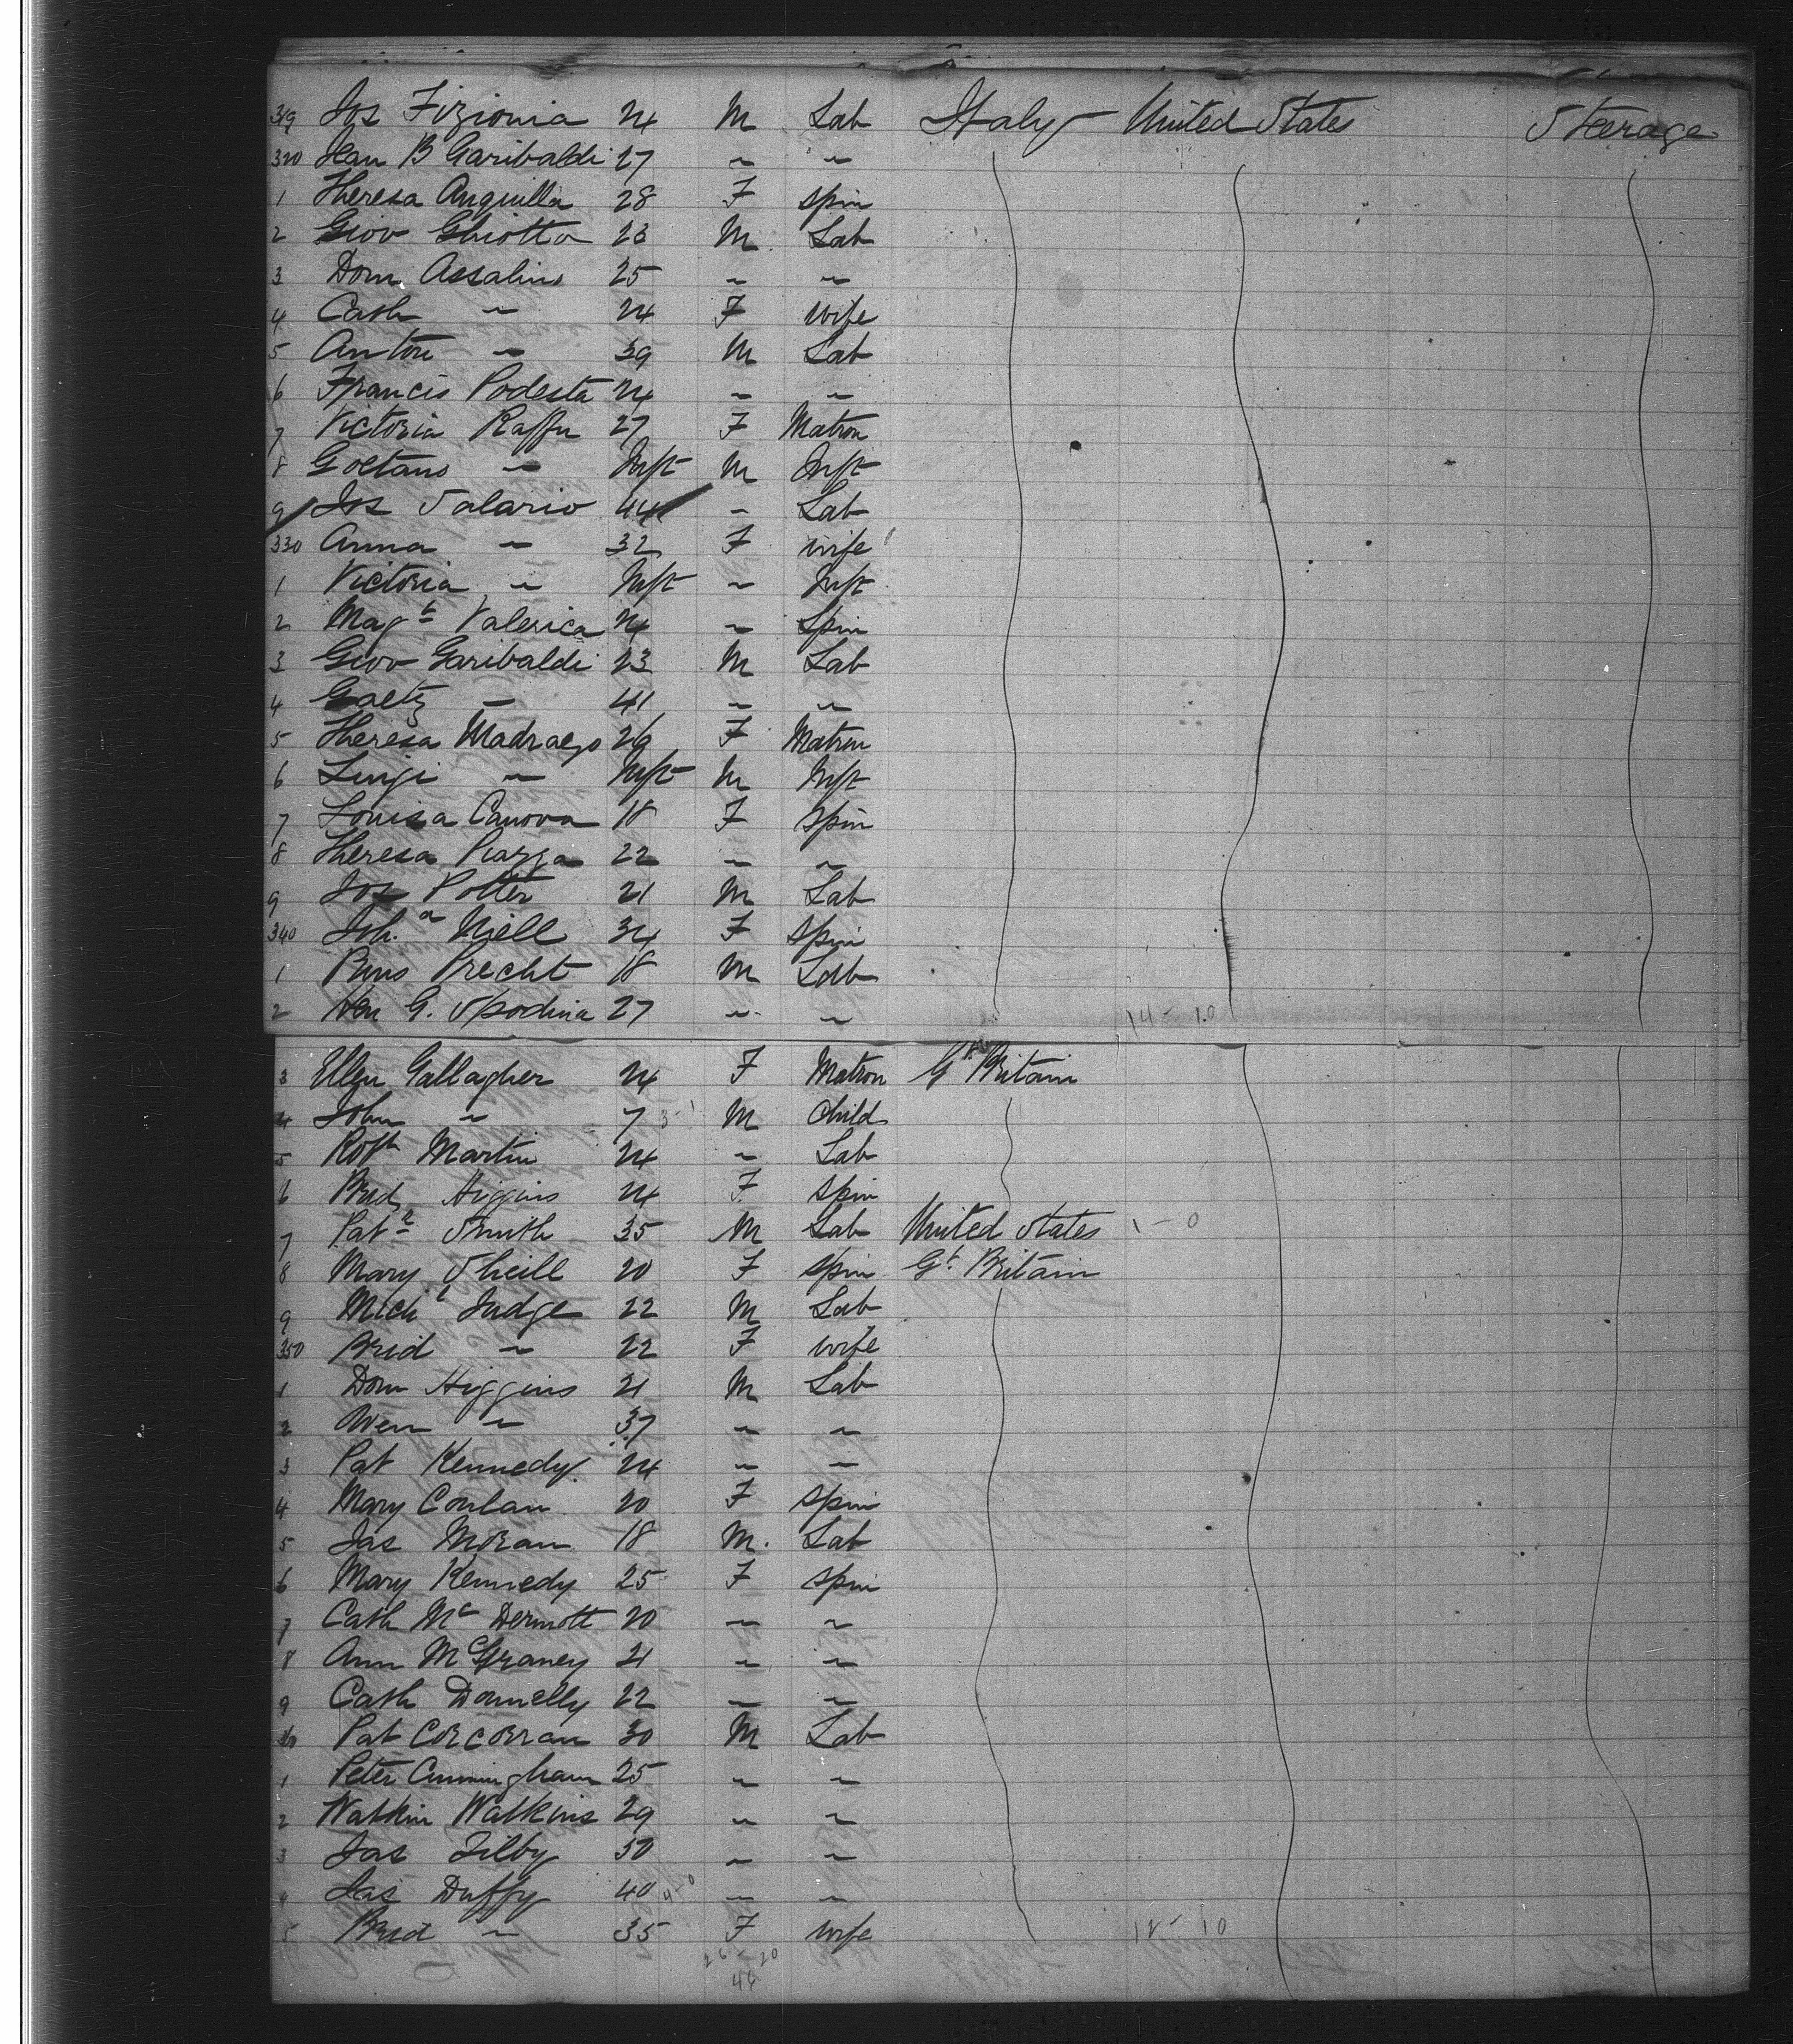 319 Jos Fizionia 24 M Lab Italy United States Steerage
320 Jean B Garibaldi 27 " "
1 Theresa Anguilla 28 F Spin
2 Giov Ghiotto 23 M Lab
3 Dom Assalino 25 " "
4 Cath " 24 F wife
5 Anton " 39 M Lab
6 Francis Podesta 24 " "
7 Victoria Raffu 27 F Matron
8 Goetano " Inft M Inft
9 Jos Salario 44 " Lab
330 Anna " 32 F wife
1 Victoria " Inft " Inft
2 Magt Valerica 24 " Spin
3 Giov Garibaldi 23 M Lab
4 Gaetz " 41 " "
5 Theresa 26 F Matron
6 Luigi " Inft M Inft
7 Louisa Canova 18 F Spin
8 Theresa Piazza 22 " "
9 Jos Potter 21 M Lab
340 Joh.a Niell 34 F Spin
1 Precht 18 M Lab
2 Hen G. Spodina 27 " " 14 - 10
3 Ellen Gallagher 24 F Matron Gt Britain
4 John " 7 3-1 M Child
5 Robt Martin 24 " Lab
6 Brid Higgins 24 F Spin
7 Patk Smith 35 M Lab United States 1 - 0
8 Mary Sheill 20 F Spin Gt. Britain
9 Michl Judge 22 M Lab
350 Brid " 22 F wife
1 Dom Higgins 21 M Lab
2 Owen " 37 " "
3 Pat Kennedy 24 " "
4 Mary Conlan 20 F Spin
5 Jas Moran 18 M. Lab
6 Mary Kennedy 25 F Spin
7 Cath Mc Dermott 20 " "
8 Ann McGraney 21 " "
9 Cath Donnelly 22 " "
360 Pat Corcorran 30 M Lab
1 Peter Cunningham 25 " "
2 Watkin Watkins 29 " "
3 Jas Tilby 50 " "
4 Jas Duffy 40 4-0 " "
5 Brid " 35 F wife 12 - 10
26 - 20
46